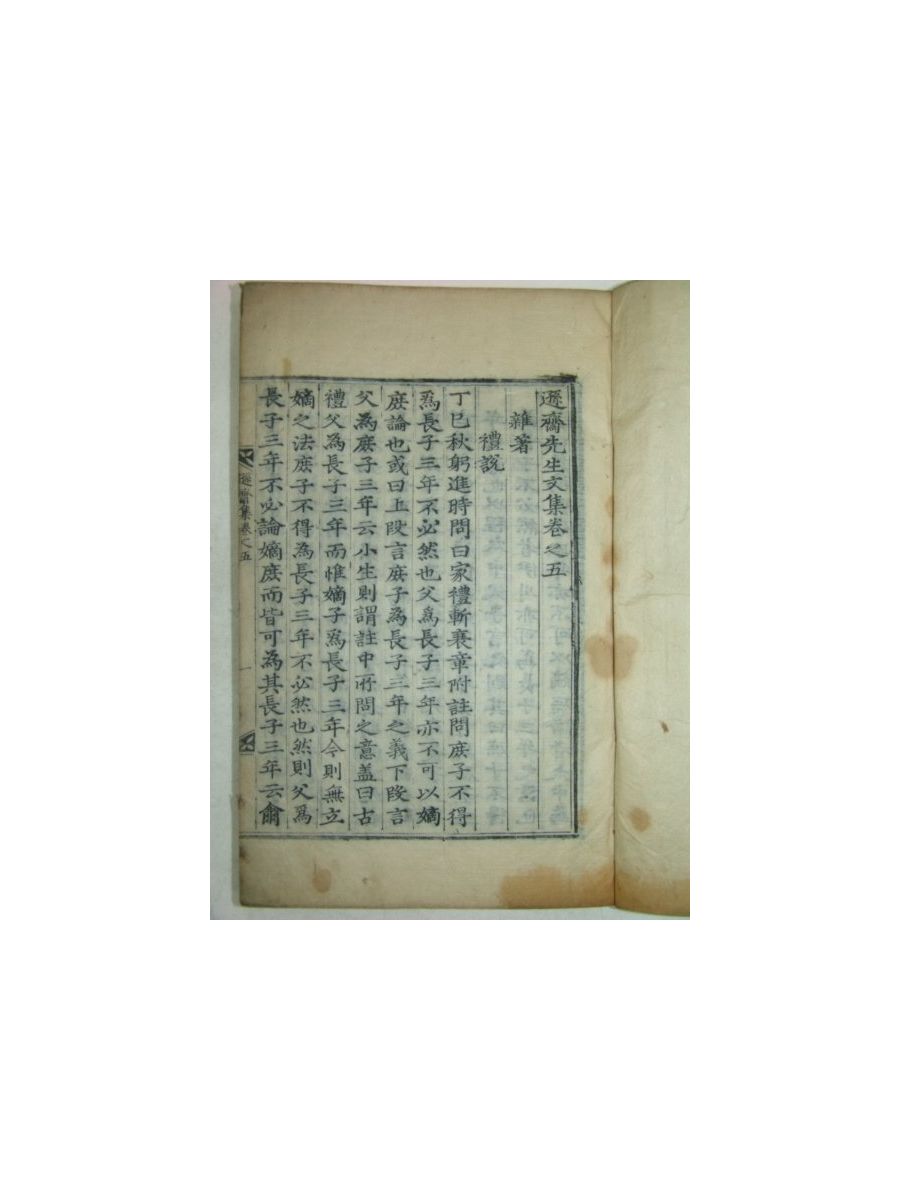 遜齋先生文集卷之五
雜著
禮說
丁巳秋躬進時問曰家禮斬衰章附註問庻子不得
爲長子三年不必然也父爲長子三年亦不可以嫡
庻論也或曰上段言庻子爲長子三年之義下段言
父爲庻子三年云小生則謂註中所問之意盖曰古
禮父爲長子三年而惟嫡子爲長子三年今則無立
嫡之法庻子不得爲長子三年不必然也然則父爲
長子三年不必論嫡庻而皆可爲其長子三年云爾
遜齋集卷之五
一